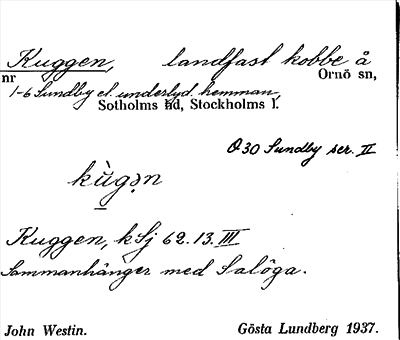 Kuggen, landfast kobbe å
nr Ornö sn,
1-6 Sundby el. underlyd. hemman,
Sotholms hd, Stockholms l.
O 30 Sundby ser. II
kùgən
Kuggen, kSj 62.13.III
Sammanhänger med Salöga.
John Westin. Gösta Lundberg 1937.